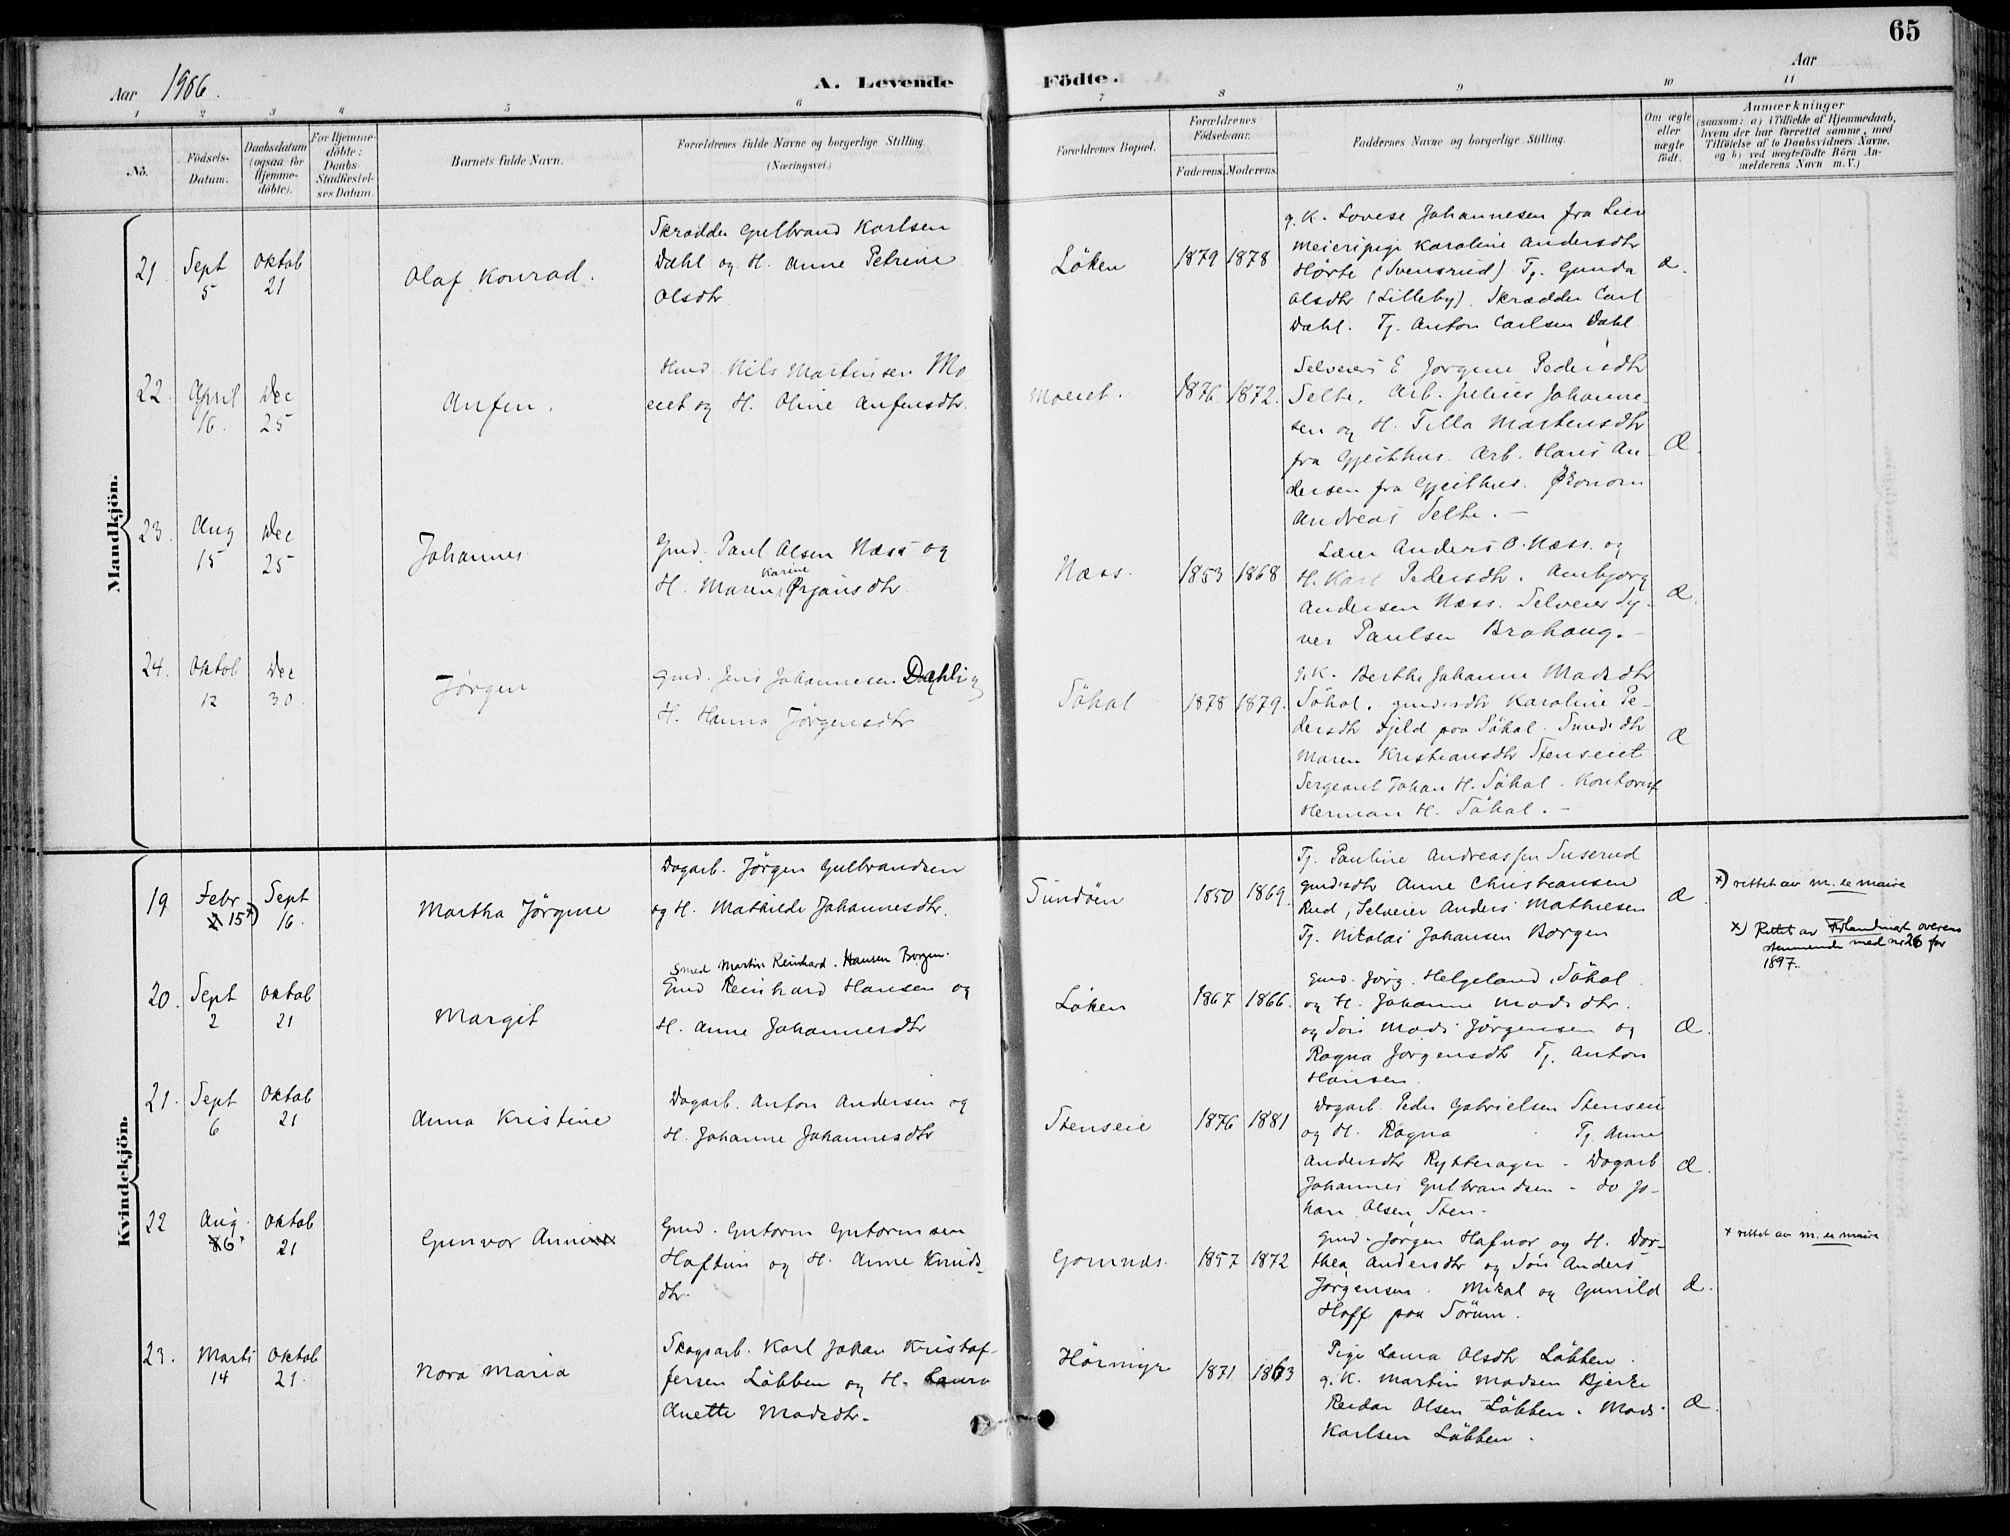 65
Aar 1906.
A. Levende Fødte.
Aar
1 2 3 4 5 6 7 8 9 10 11
No.
Fødsels-Datum.
Daabsdatum (ogsaa for Hjemmedøbte).
For Hjemmedøbte: Daabs-Stadfæstelses Datum.
Barnets fulde Navn.
Forældrenes fulde Navne og borgerlige Stilling.
(Næringsvei.)
Forældrenes Bopæl.
Forældrenes Fødselsaar.
Faderens. Moderens.
Faddernes Navne og borgerlige Stilling.
Om ægte eller uægte født.
Anmærkninger
(saasom: a) i Tilfælde af Hjemmedaab, hvem der har forrettet samme, med Tilføielse af to Daabsvidners Navne, og b) ved uægtefødte Børn Anmelderens Navn m. V.)
Mandkjön.
21. Sept 5
Oktob 21
Olaf Konrad.
Skrædder Gulbrand Karlsen
Dahl og H. Anne Petrine
Olsdtr
Löken
1879 1878
g. K. Lovese Johannesen fra Lier
Meieripige Karoline Andersdtr
Hörte (Svensrud) Tj. Gunda
Olsdtr (Lilleby). Skrædder Carl
Dahl. Tj. Anton Carlsen Dahl
Æ.
22. April 16.
Dec 25
Anfin.
Gmd. Nils Martinsen Mo
eiet og H. Oline Anfinsdtr.
Moeiet.
1876 1872.
Selveiers E Jørgine Pedersdtr
Selte. Arb. Julius Johanne-
sen og H. Tilla Martensdtr
fra Gjeithus. Arb. Hans An-
dersen fra Gjeithus. Økonom
Andreas Selte. –
Æ.
23. Aug 15
Dec 25
Johannes
Gmd. Paul Olsen Næss og
Karine
H. Maren Ørjansdtr.
Næss.
1853 1868
Lærer Anders O. Næss. og
H. Kari Pedersdtr. Ambjørg
Andersen Næss. Selveier Sy-
ver Paulsen Brahaug. –
Æ.
24. Oktob 12
Dec 30
Jørgen
Gmd. Jens Johannesen Dahli og
H. Hanna Jørgensdtr
Söhol
1878 1879.
g. K. Berthe Johanne Madsdtr
Söhol. gmdsdtr Karoline Pe-
dersdtr Fjeld paa Söhol. Gmdsdtr
Maren Kristiansdtr Stenseiet
Sergeant Johan H. Söhol. Kontorist
Herman H. Söhol. –
Æ
Kvindekjön.
19 Febr 15 x)
Sept 16.
Martha Jörgine
Dagarb. Jörgen Gulbrandsen
og H. Mathilde Johannesdtr.
Sundöen
1850 1869.
Tj. Pauline Andreassen Suserud
gmdsdtr Anne Christiansen
Rud, Selveier Anders Mathiesen
Tj. Nikolai Johansen Borgen
Æ.
x) rettet av m. ee maire
x) Rettet av overens
stemmende med nr 26 for
1897.
20. Sept 2
Oktob 21
Margit
Smed Martin Reinhard. Hansen Borgen.
Gmd Reinhard Hansen og
H. Anne Johannesdtr
Löken
1867 1866.
Gmd. Jörg. Helgeland Söhol.
og H. Johanne Madsdtr.
og Søn Mads Jørgensen og
Ragna Jørgensdtr Tj. Anton
Hansen.
Æ.
21. Sept 6
Oktob 21
Anna Kristine
Dagarb. Anton Andersen og
H. Johanne Johannesdtr
Stenseie
1876 1881
Dagarb. Peder Gabrielsen Stenseie
og H. Ragna Tj. Anne
Andersdtr Rytterager. Dagarb
Johannes Gulbrandsen. do Jo-
han Olsen Sten.
Æ.
22 Aug. 6 x
Oktob 21
Gunvor Annine
Gmd. Gutorm Gutormsen
Haftun og H. Anne Knuds-
dtr.
Gomnæs.
1857 1872
Gmd. Jørgen Hafnor og H. Dor-
thea Andersdtr og Søn Anders
Jørgensen. Mikal og Gunild
Hoff paa Sörum.
Æ.
x rettet av m. ee maire
23. Marts 14
Oktob 21.
Nora Maria
Skogsarb. Karl Johan Kristof-
fersen Löbben og H. Laura
Anette Madsdtr.
Hörmyr
1871 1863
Pige Laura Olsdtr Löbben.
g. K. Martin Madsen Bjerke
Reidar Olsen Löbben. Mads
Karlsen Löbben.
Æ.